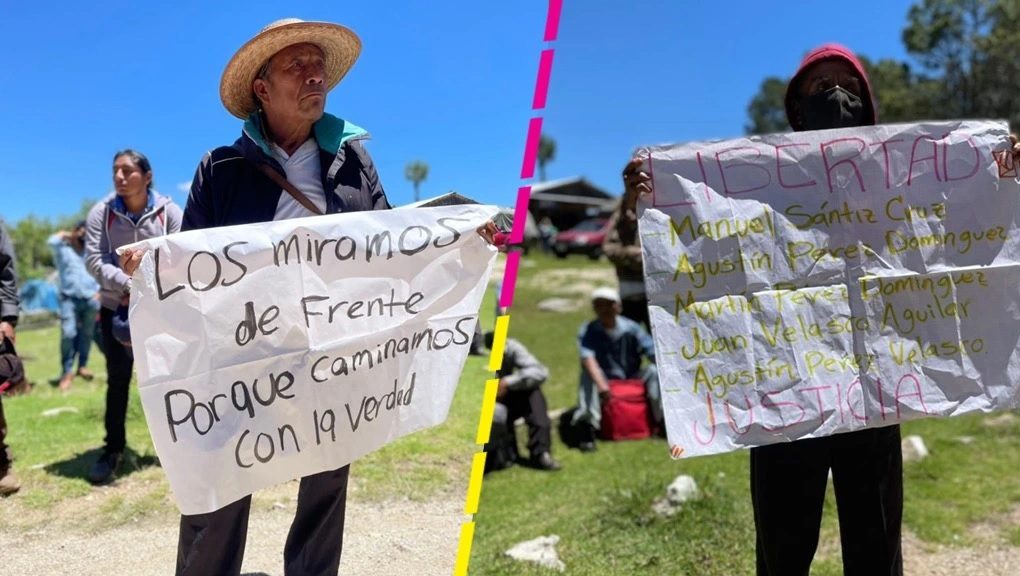 Los miramos
de Frente
Porque caminamos
con la verdad
LIBERTAD
- Manuel Sántiz Cruz
- Agustín Pérez Domínguez
Martín Pérez Domínguez
- Juan Velasco Aguilar
- Agustín Pérez Velasco.
JUSTICIA